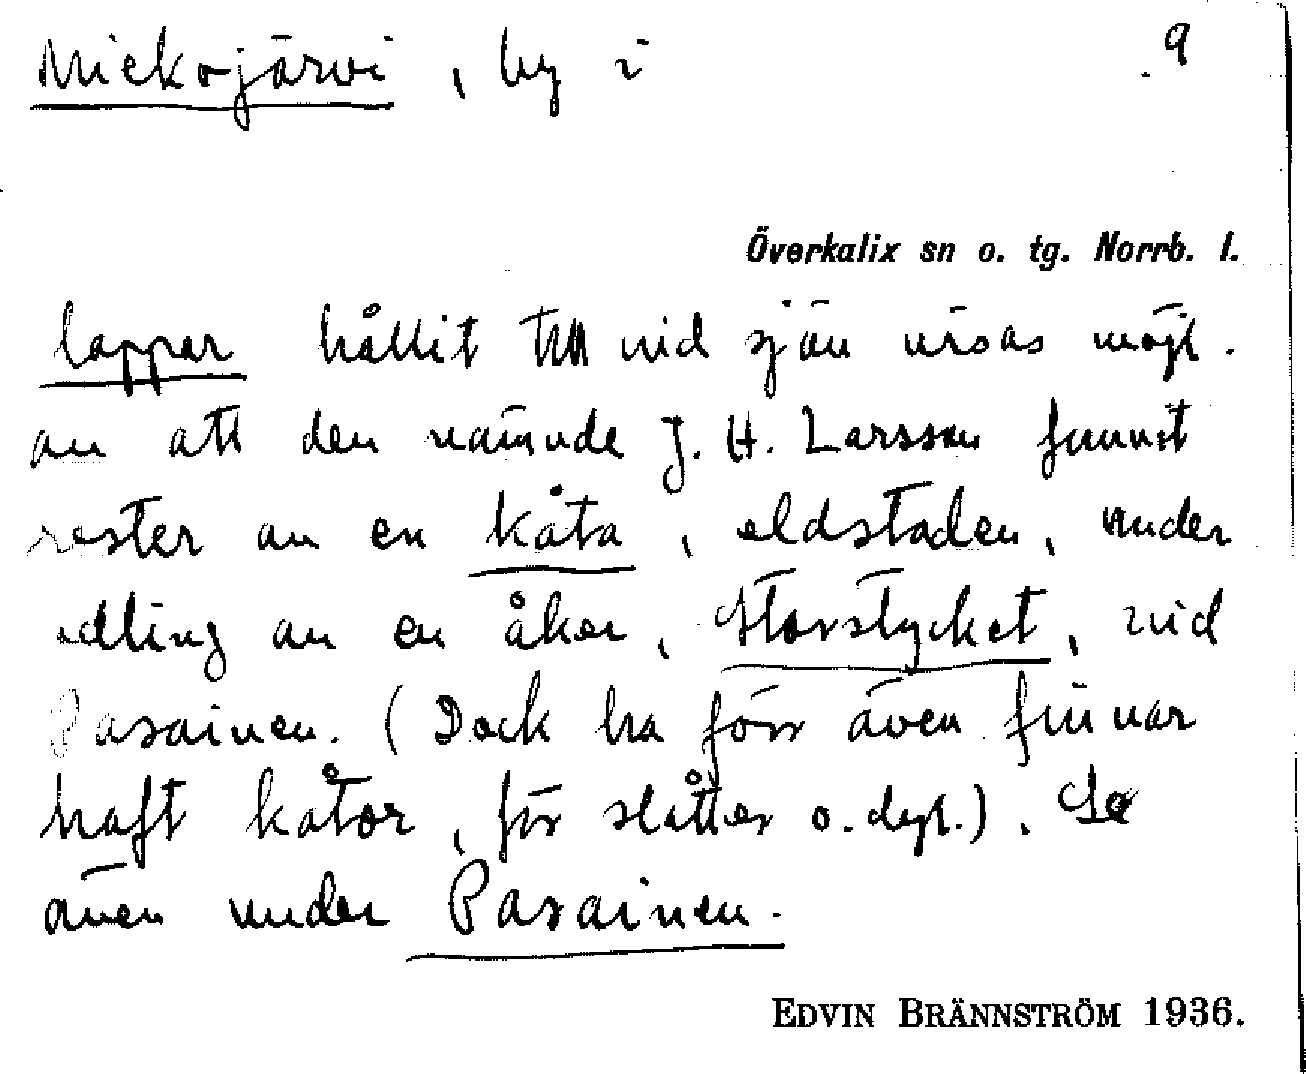 Mickojärvi, by i 9
Överkalix sn o. tg. Norrb. l.
lappar hållit till vid sjön visas möjl.
av att den nämnde J. H. Larsson funnit
rester av en kåta, eldstaden, under
odling av en åker, Storstycket, vid
Pasainen. (Dock ha förr även finnar
haft kåtor, för slåtter o. dyl.). Se
även under Pasainen.
EDVIN BRÄNNSTRÖM 1936.